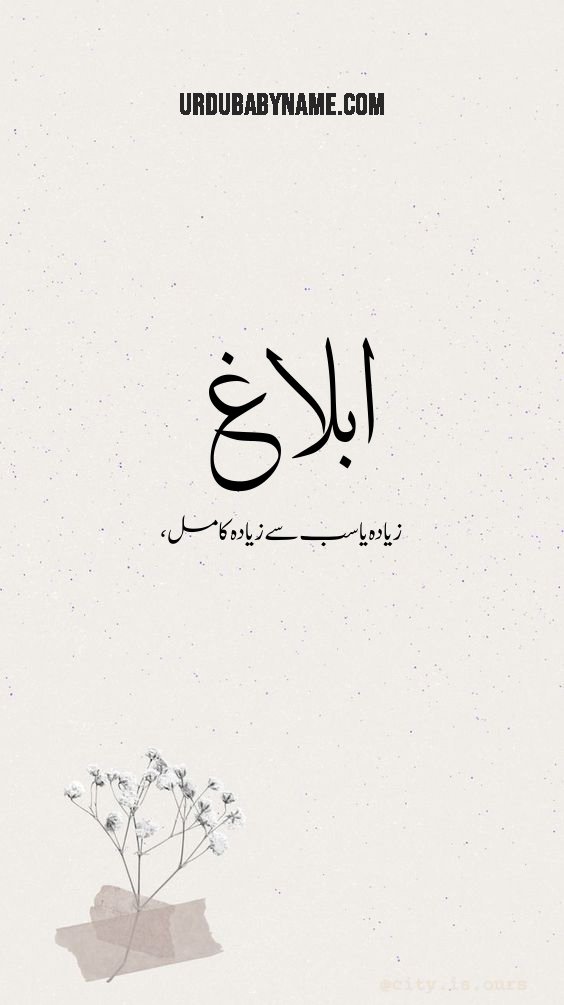 URDUBABYNAME.COM
ابلاغ
زیادہ یا سب سے زیادہ کامل،
@city.is.ours